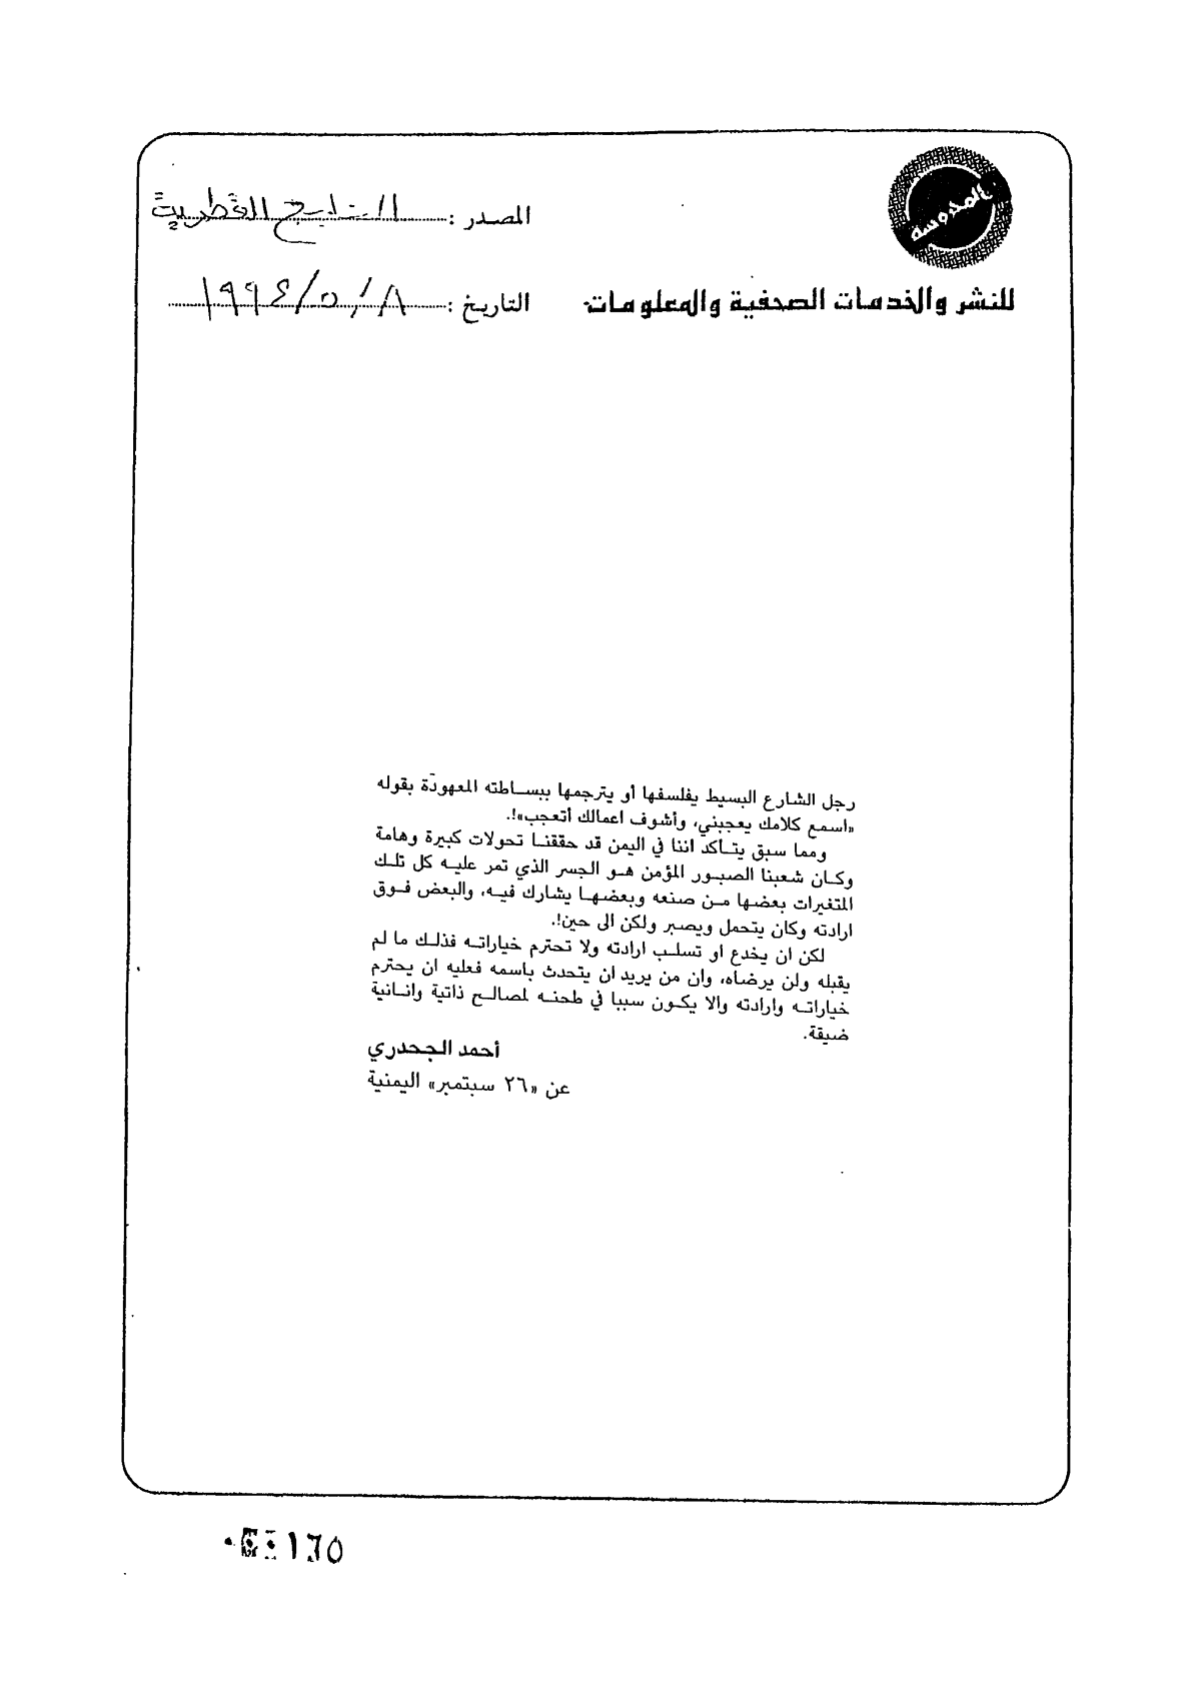 المدوسة
المصدر : القطرية
للنشر والخدمات الصحفية والمعلومات
التاريخ : ٨ / ٥ / ١٩٩٤
رجل الشارع البسيط يفلسفها أو يترجمها ببساطته المعهودة بقوله
«اسمع كلامك يعجبني، وأشوف اعمالك أتعجب»!.
ومما سبق يتأكد اننا في اليمن قد حققنا تحولات كبيرة وهامة
وكان شعبنا الصبور المؤمن هو الجسر الذي تمر عليه كل تلك
المتغيرات بعضها من صنعه وبعضها يشارك فيه، والبعض فوق
ارادته وكان يتحمل ويصبر ولكن الى حين!.
لكن ان يخدع او تسلب ارادته ولا تحترم خياراته فذلك ما لم
يقبله ولن يرضاه، وان من يريد ان يتحدث باسمه فعليه ان يحترم
خياراته وارادته والا يكون سببا في طحنه لمصالح ذاتية وانانية
ضيقة.
أحمد الجحدري
عن «٢٦ سبتمبر» اليمنية